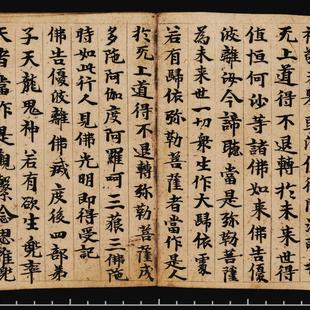 无上道得不退轉扵未来世得
值恒河沙等諸佛如来佛告優
波離汝今諦聽當是弥勒菩薩
為未来世一切衆生作大歸依處
若有歸依弥勒菩薩者當作是人
扵无上道得不退轉弥勒菩薩成
多陁阿伽度阿羅呵三藐三佛陁
時如此行人見佛光明即得受記
佛告優波離佛滅度後四部弟
子天龍鬼神若有欲生兜率
天者當作是觀繫念思惟兜